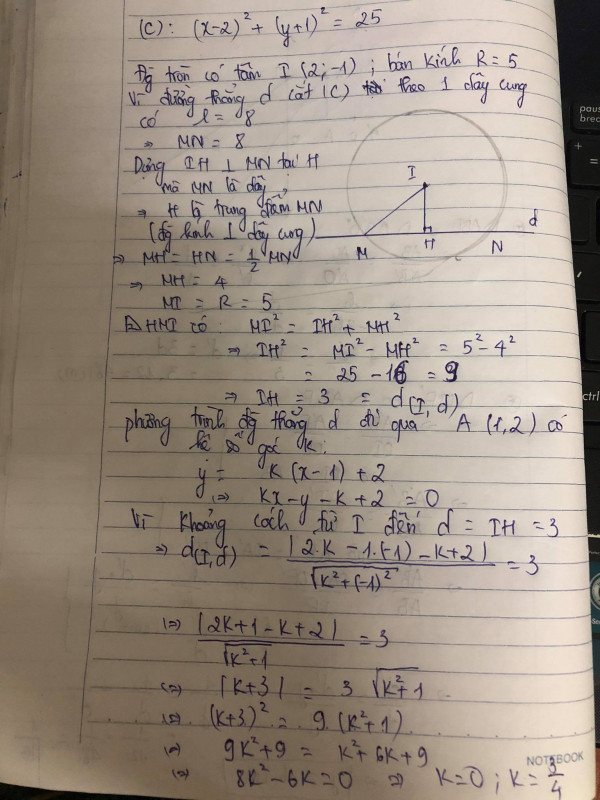 (C): (x-2)² + (y+1)² = 25
Đg tròn có tâm I (2; -1) ; bán kính R = 5
Vì đường thẳng d cắt (C) theo 1 dây cung
có l = 8
⇒ MN = 8
Dựng IH ⊥ MN tại H
mà MN là dây
⇒ H là trung điểm MN
(đg kính 1 dây cung)
⇒ MH = HN = 1/2 MN
⇒ MH = 4
MI = R = 5
I
M
H
N
d
ΔHMI có: MI² = IH² + MH²
⇒ IH² = MI² - MH² = 5² - 4²
= 25 - 16 = 9
⇒ IH = 3 = d(I, d)
phương trình đg thẳng d đi qua A (1,2) có
hệ số góc K:
y = K(x-1) + 2
⇔ Kx - y - K + 2 = 0
Vì khoảng cách từ I đến d = IH = 3
⇒ d(I, d) = |2.K - 1.(-1) - K + 2| / √(K² + (-1)²) = 3
⇔ |2K + 1 - K + 2| / √(K² + 1) = 3
⇔ |K+3| = 3 √(K²+1)
⇔ (K+3)² = 9.(K²+1)
⇔ 9K² + 9 = K² + 6K + 9
⇔ 8K² - 6K = 0 ⇒ K = 0 ; K = 3/4
NOTEBOOK
pause
brea
+
=
ctrl